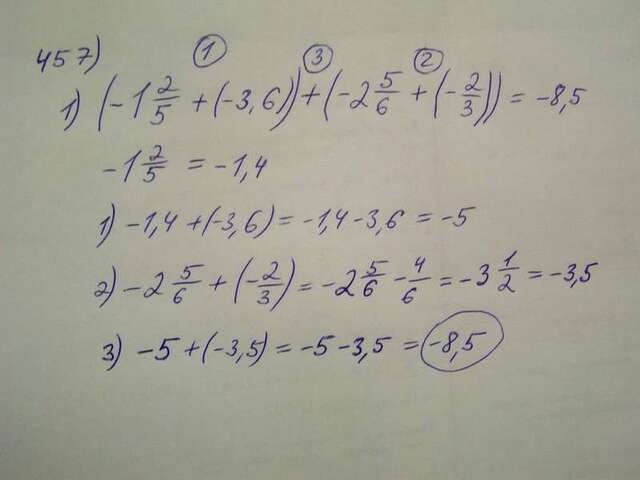 457) ① ③ ②
1) (-1 2/5 + (-3,6)) + (-2 5/6 + (-2/3)) = -8,5
-1 2/5 = -1,4
1) -1,4 + (-3,6) = -1,4 - 3,6 = -5
2) -2 5/6 + (-2/3) = -2 5/6 - 4/6 = -3 1/2 = -3,5
3) -5 + (-3,5) = -5 - 3,5 = -8,5